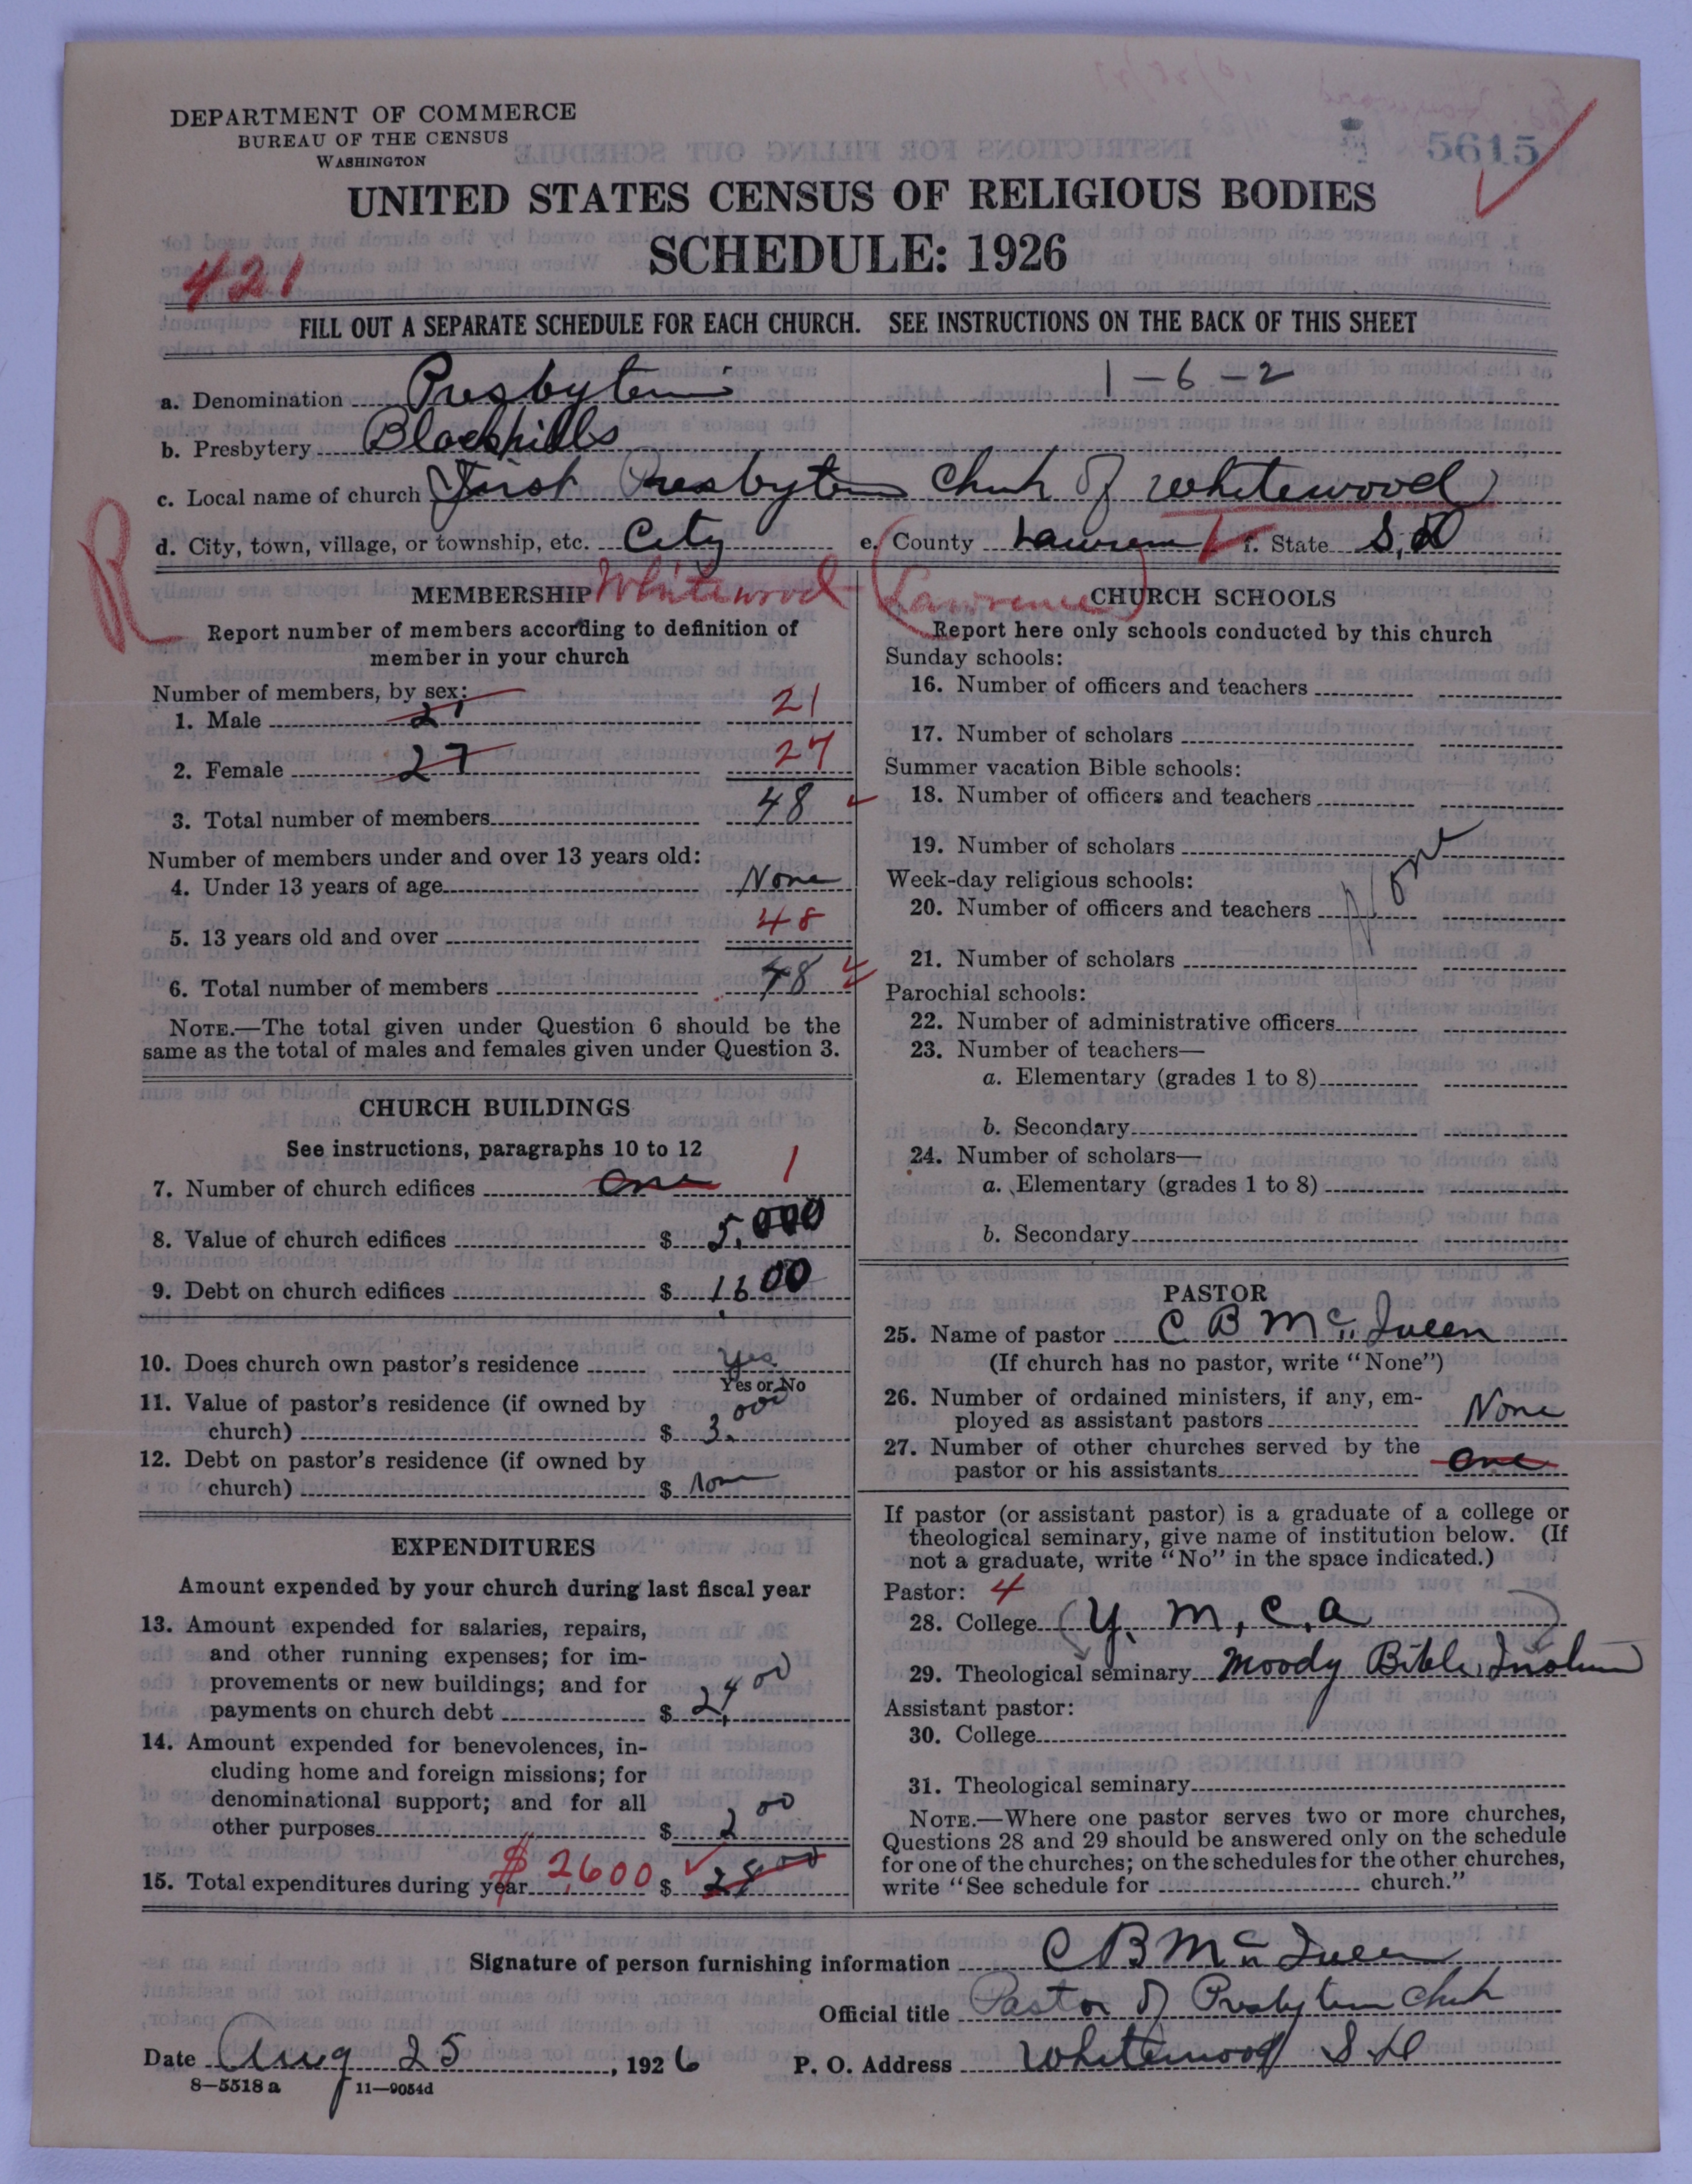 DEPARTMENT OF COMMERCE
BUREAU OF THE CENSUS
WASHINGTON
5615
UNITED STATES CENSUS OF RELIGIOUS BODIES
SCHEDULE: 1926
421
FILL OUT A SEPARATE SCHEDULE FOR EACH CHURCH. SEE INSTRUCTIONS ON THE BACK OF THIS SHEET
a. Denomination Presbyterian 1-6-2
b. Presbytery Blackhills
c. Local name of church First Presbyterian Church of Whitewood
R
d. City, town, village, or township, etc. City e. County Lawrence f. State S. D
Whitewood (Lawrence)
MEMBERSHIP
Report number of members according to definition of
member in your church
Number of members, by sex:
1. Male 21 21
2. Female 27 27
3. Total number of members 48
Number of members under and over 13 years old:
4. Under 13 years of age None
5. 13 years old and over 48
6. Total number of members 48
NOTE.—The total given under Question 6 should be the
same as the total of males and females given under Question 3.
CHURCH BUILDINGS
See instructions, paragraphs 10 to 12
7. Number of church edifices one 1
8. Value of church edifices $ 5,000
9. Debt on church edifices $ 1,600
10. Does church own pastor's residence Yes
Yes or No
11. Value of pastor's residence (if owned by
church) $ 3,000
12. Debt on pastor's residence (if owned by
church) $ None
EXPENDITURES
Amount expended by your church during last fiscal year
13. Amount expended for salaries, repairs,
and other running expenses; for im-
provements or new buildings; and for
payments on church debt $ 2,400
14. Amount expended for benevolences, in-
cluding home and foreign missions; for
denominational support; and for all
other purposes $ 200
15. Total expenditures during year $2,600 $
CHURCH SCHOOLS
Report here only schools conducted by this church
Sunday schools:
16. Number of officers and teachers
17. Number of scholars
Summer vacation Bible schools:
18. Number of officers and teachers
19. Number of scholars
None
Week-day religious schools:
20. Number of officers and teachers
21. Number of scholars
Parochial schools:
22. Number of administrative officers
23. Number of teachers—
a. Elementary (grades 1 to 8)
b. Secondary
24. Number of scholars—
a. Elementary (grades 1 to 8)
b. Secondary
PASTOR
25. Name of pastor C B McQueen
(If church has no pastor, write "None")
26. Number of ordained ministers, if any, em-
ployed as assistant pastors None
27. Number of other churches served by the
pastor or his assistants one
If pastor (or assistant pastor) is a graduate of a college or
theological seminary, give name of institution below. (If
not a graduate, write "No" in the space indicated.)
Pastor: 4
28. College (Y. M. C. A )
29. Theological seminary Moody Bible Institute
Assistant pastor:
30. College
31. Theological seminary
NOTE.—Where one pastor serves two or more churches,
Questions 28 and 29 should be answered only on the schedule
for one of the churches; on the schedules for the other churches,
write "See schedule for church."
Signature of person furnishing information C B McQueen
Official title Pastor of Presbyterian Church
Date Aug 25, 1926 P. O. Address Whitewood S D
8-5518 a 11-9054d